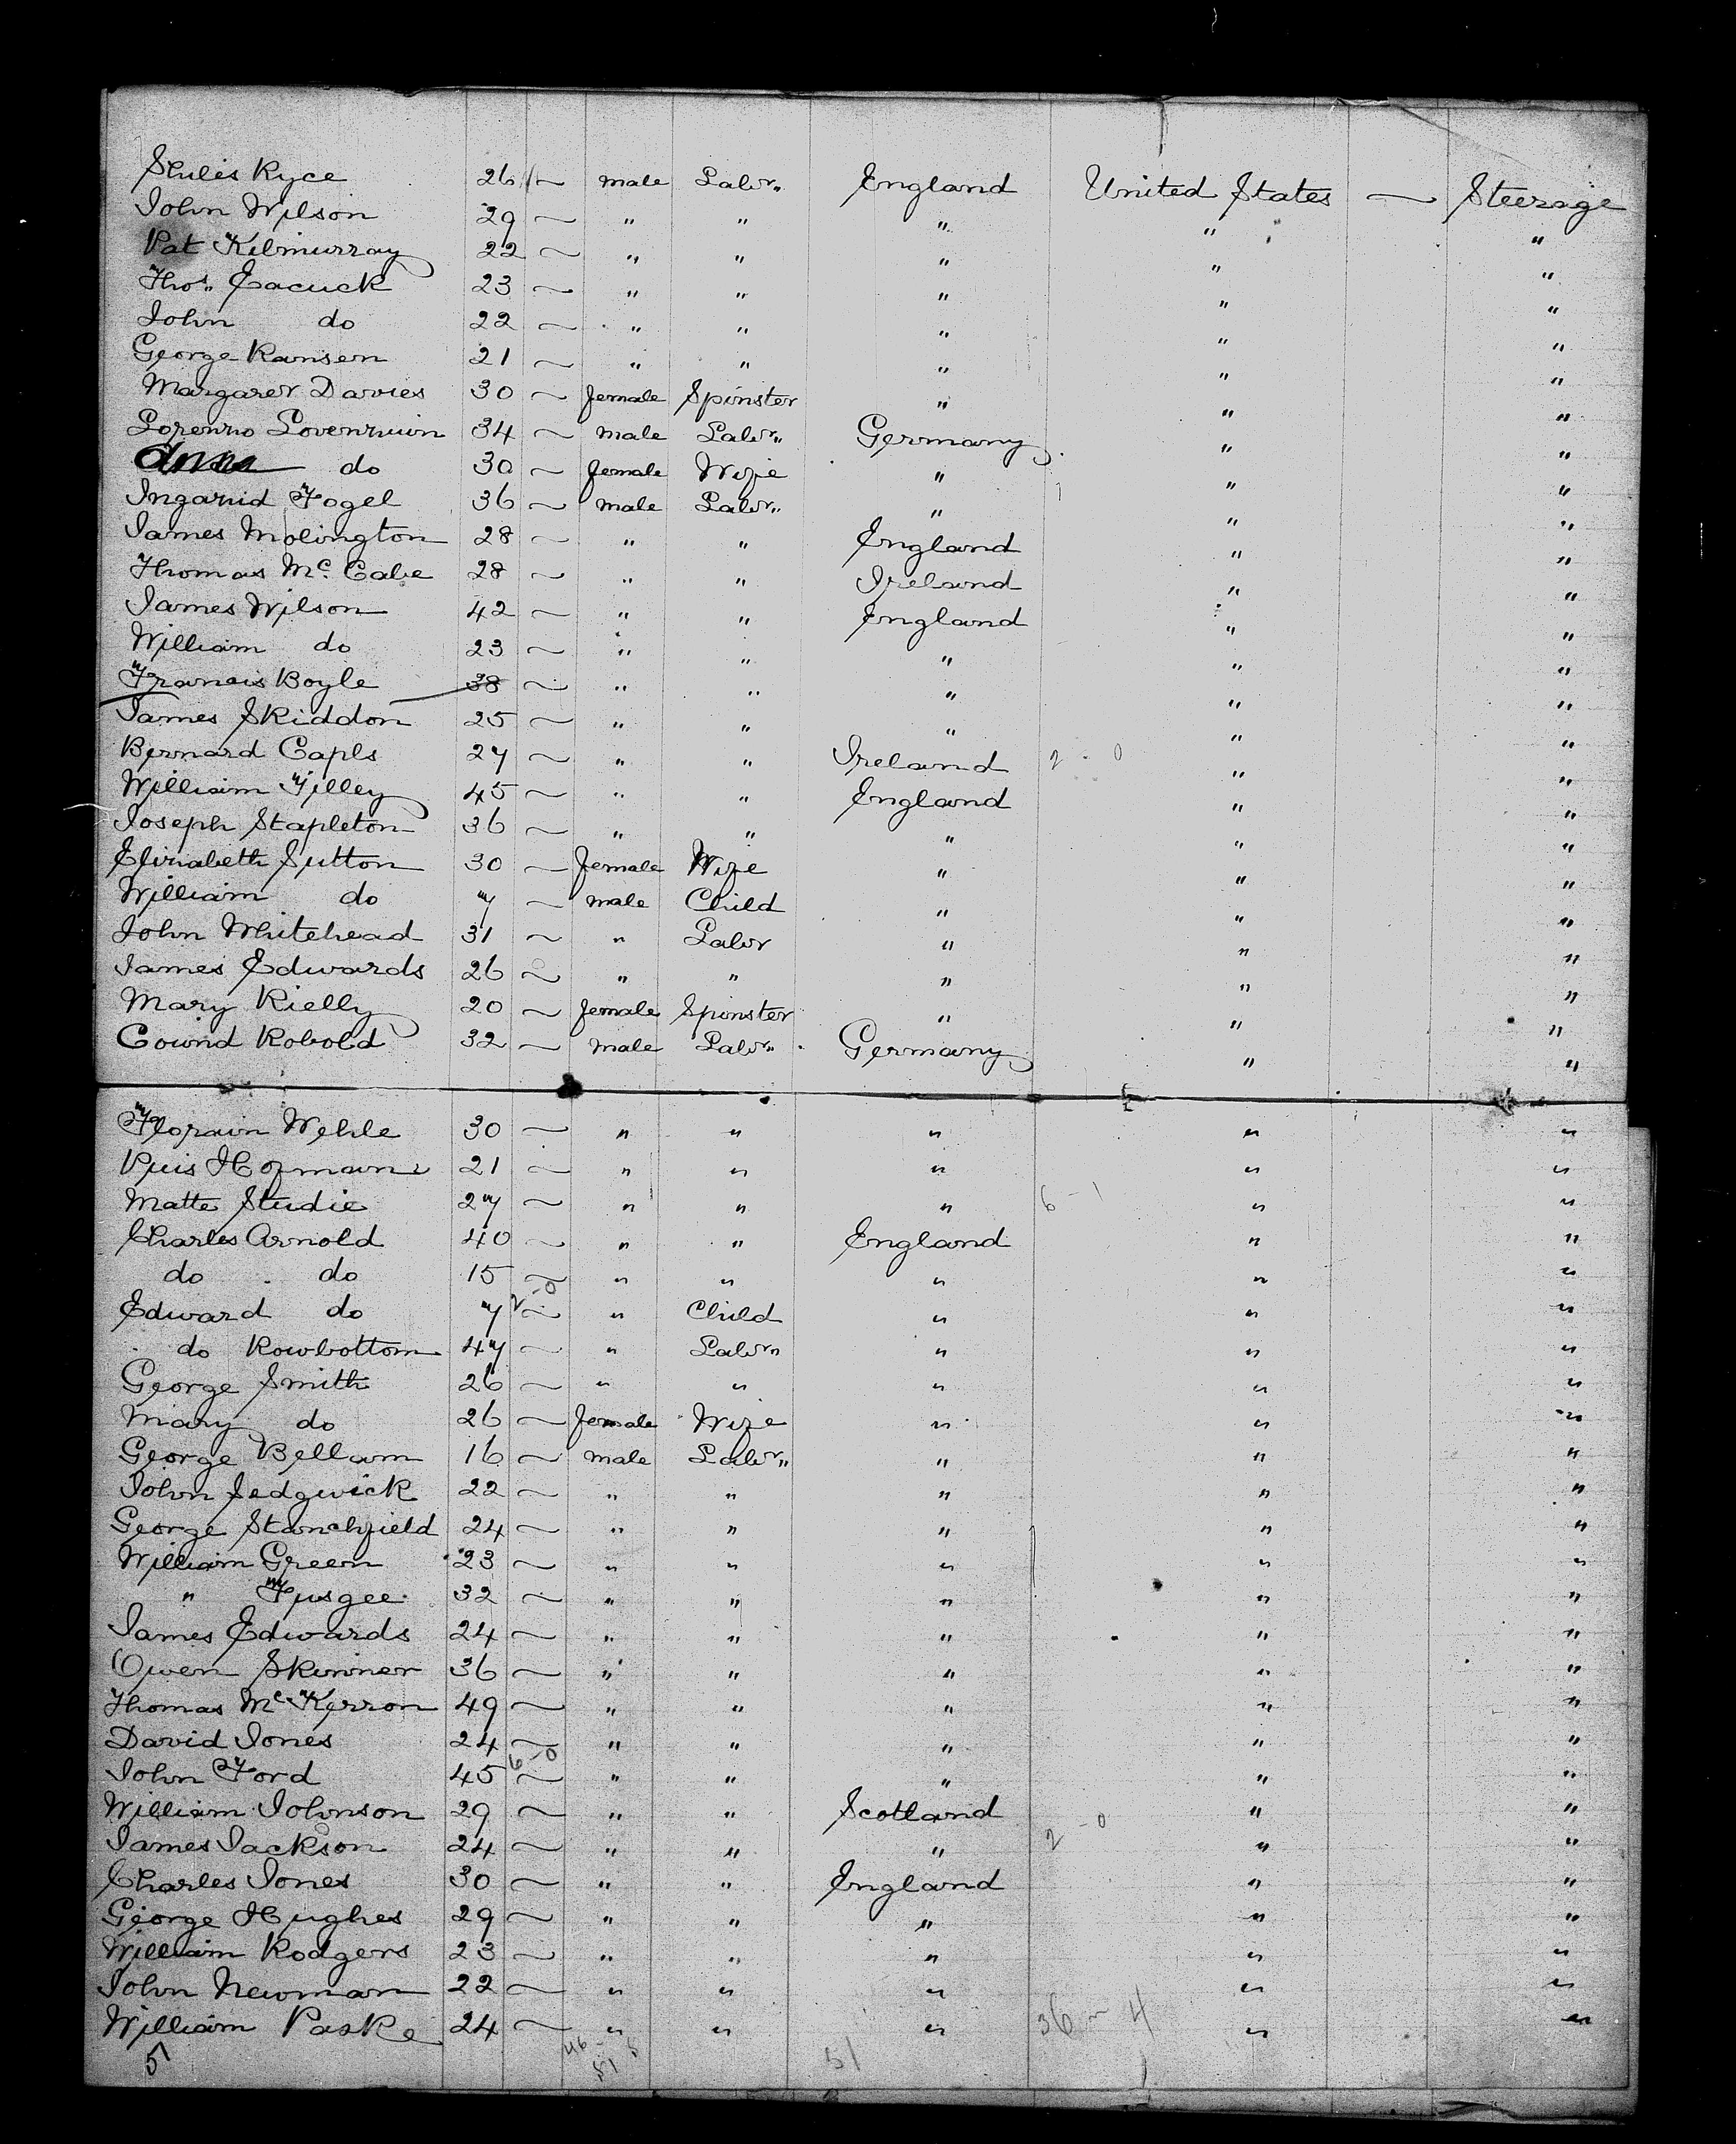 Stulis Ryce 26 — male Labr. England United States — Steerage
John Wilson 29 — " " " " "
Pat Kilmurray 22 — " " " " "
Thos. Eacuck 23 — " " " " "
John do 22 — " " " " "
George Ransen 21 — " " " " "
Margaret Davies 30 — female Spinster " " "
Lorenzo 34 — male Labr. Germany " "
do 30 — female Wife " " "
Fogel 36 — male Labr. " " "
James Molington 28 — " " England " "
Thomas Mc. Cabe 28 — " " Ireland " "
James Wilson 42 — " " England " "
William do 23 — " " " " "
Francis Boyle 38 — " " " " "
James Skiddon 25 — " " " " "
Bernard Capls 27 — " " Ireland 2 - 0 " "
William Tilley 45 — " " England " "
Joseph Stapleton 36 — " " " " "
Elizabeth Sutton 30 — female Wife " " "
William do 7 — male Child " " "
John Whitehead 31 — " Labr " " "
James Edwards 26 — " " " " "
Mary Rielly 20 — female Spinster " " "
Robold 32 — male Labr. Germany " "
Florain Wehle 30 — " " " " "
Hofmann 21 — " " " " "
Matte Studie 27 — " " " 6 - 1 " "
Charles Arnold 40 — " " England " "
do do 15 — " " " " "
Edward do 7 2 - 0 — " Child " " "
do Rowbottom 47 — " Labr. " " "
George Smith 26 — " " " " "
Mary do 26 — female Wife " " "
George Bellam 16 — male Labr. " " "
John Sedgwick 22 — " " " " "
George Stanchfield 24 — " " " " "
William Green 23 — " " " " "
" Fusgee 32 — " " " " "
James Edwards 24 — " " " " "
Owen Skinner 36 — " " " " "
Thomas Mc Kerron 49 — " " " " "
David Jones 24 — " " " " "
John Ford 45 6 - 0 — " " " " "
William Johnson 29 — " " Scotland " "
James Jackson 24 — " " " 2 - 0 " "
Charles Jones 30 — " " England " "
George Hughes 29 — " " " " "
William Rodgers 23 — " " " " "
John Newman 22 — " " " " "
William Paske 24 — " " " 36 - 4 " "
5 46 - 5 51 51